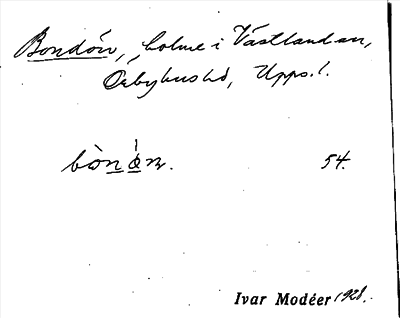 Bondön, holme i Västlandaån,
Örbyhus hd, Upps. l.
54.
Ivar Modéer 1928.